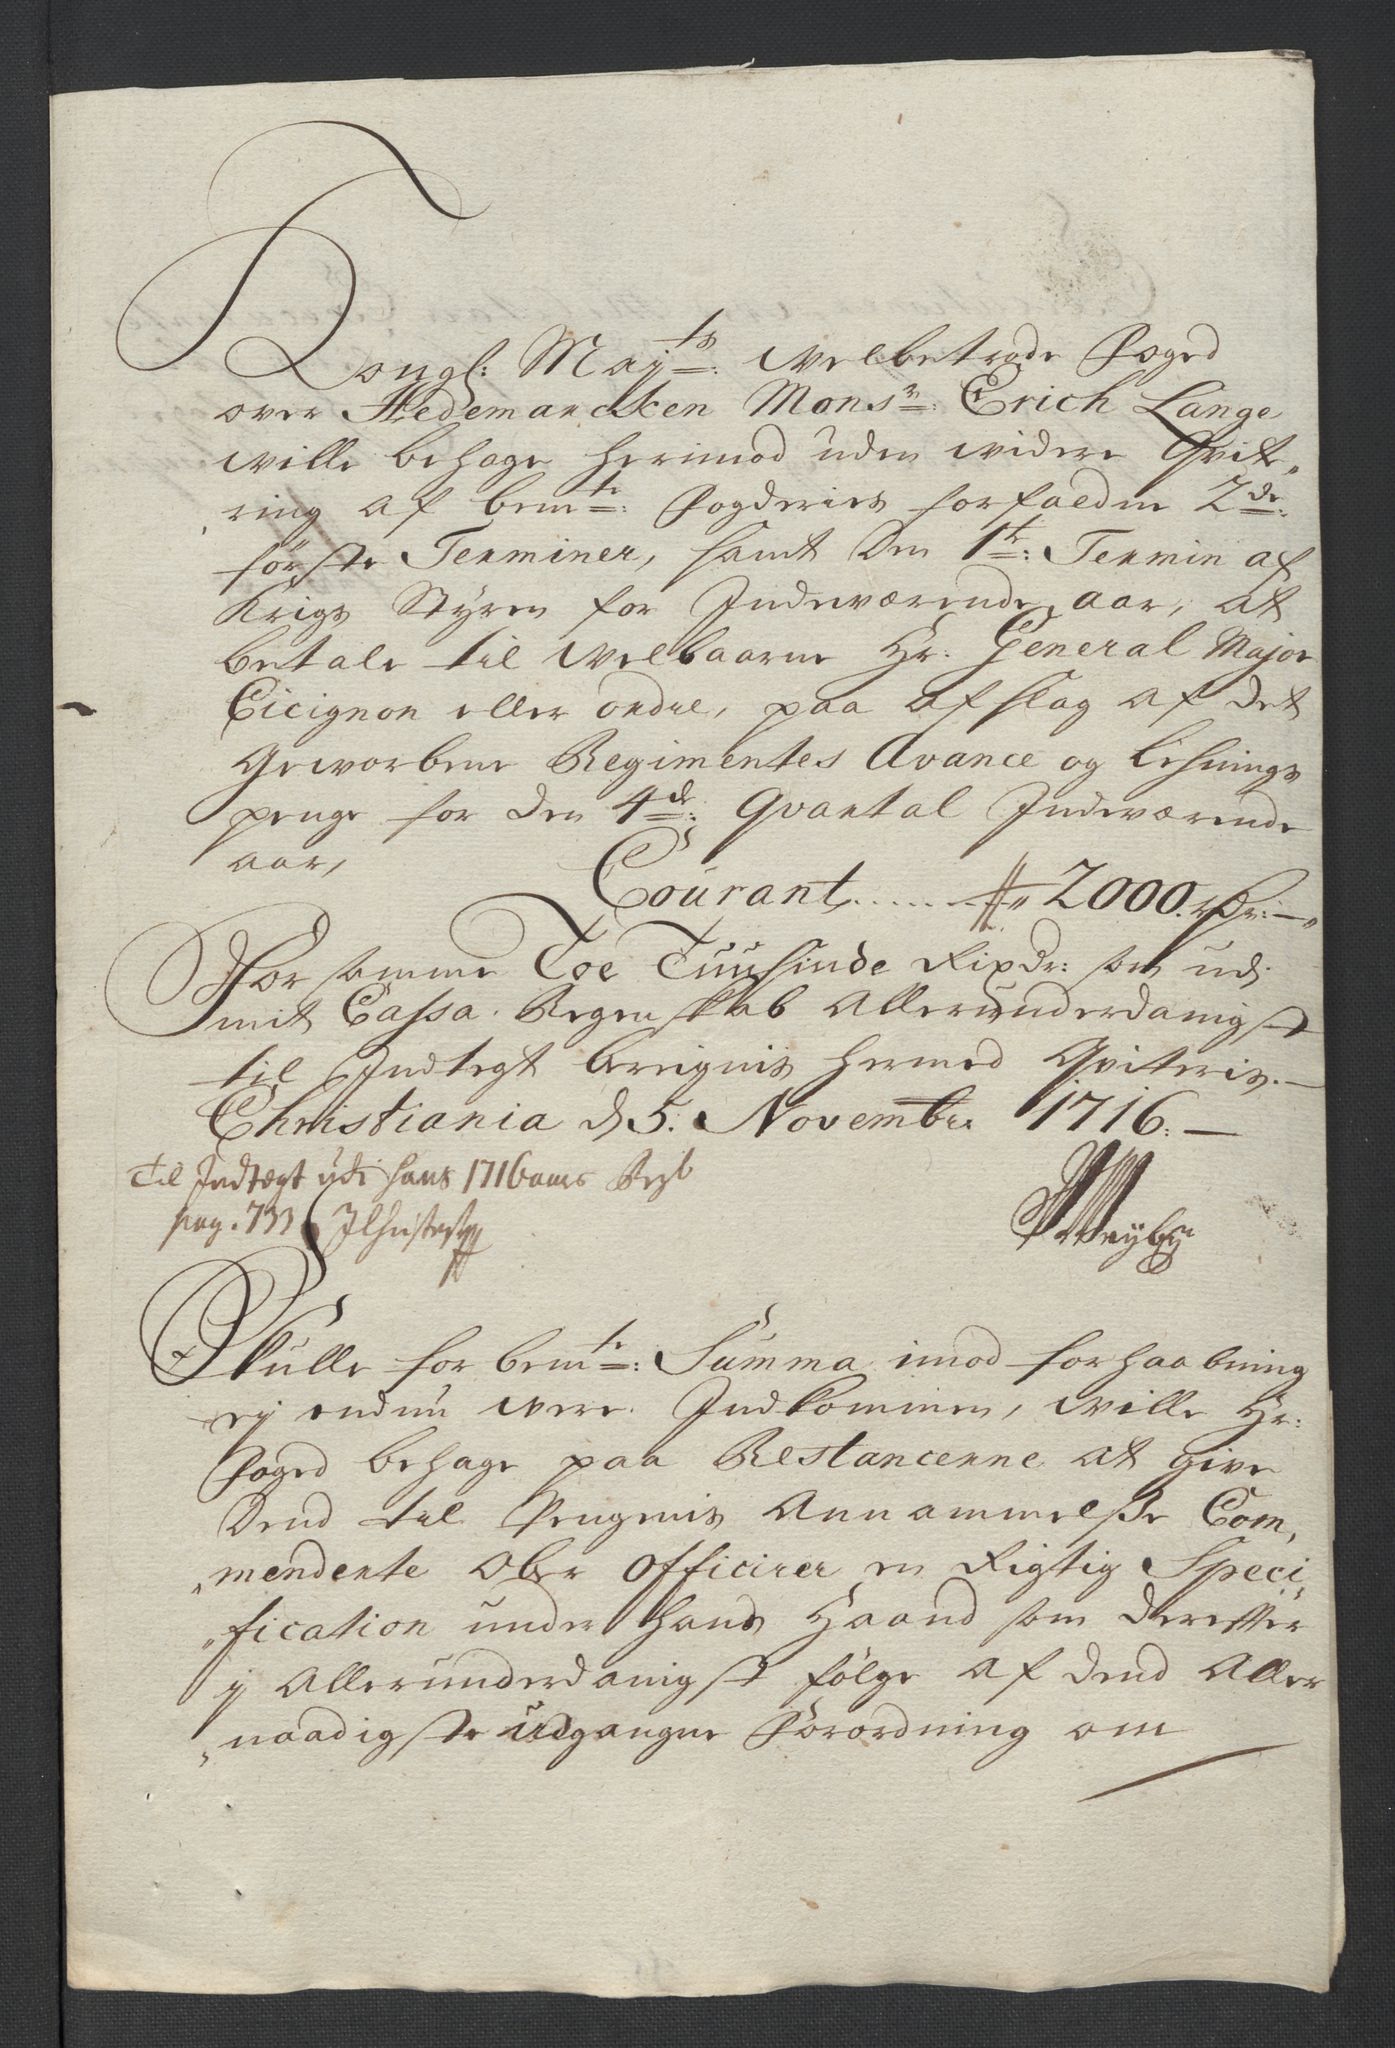 Kongl: Maj:ts velbetrode Foged
over Hedemarcken Mons:r Erich Lange
ville behage herimod uden widere Qvit„
ring af bem:te Fogderies forfaldne 2de:
første Terminer, samt den 1te: Termin af
Krigs Styren for Indeværende aar, at
betale til velbaarne Hr: General Major
Cicignon eller ordre, paa afslag af det
Geworbene Regimentes Avance og Lehnings
penge for den 4de: Qvartal Indeværende
aar,
Courant ...... 2000 rdr:—
For samme Toe Tuusinde Rixdr: som udj
mit Cassa Regenskab Allerunderdanigst
til Indtegt bereignis hermed Qviteris.—
Christiania d 5: Novembr: 1716:—
Til Indtægt udi hans 1716 aars Regb
pag. 733
Skulle for bem:te Summa imod forhaabning
ej endnu were Indkommen, wille Hr:
Foged behage paa Restancerne at give
dend til Pengenis Annammelsse Com„
„mendente Ober Officirer en Rigtig Speci„
„fication under hans Haand som derefter
j Allerunderdanigst følge af dend Aller
„naadigste udgangne Forordning om